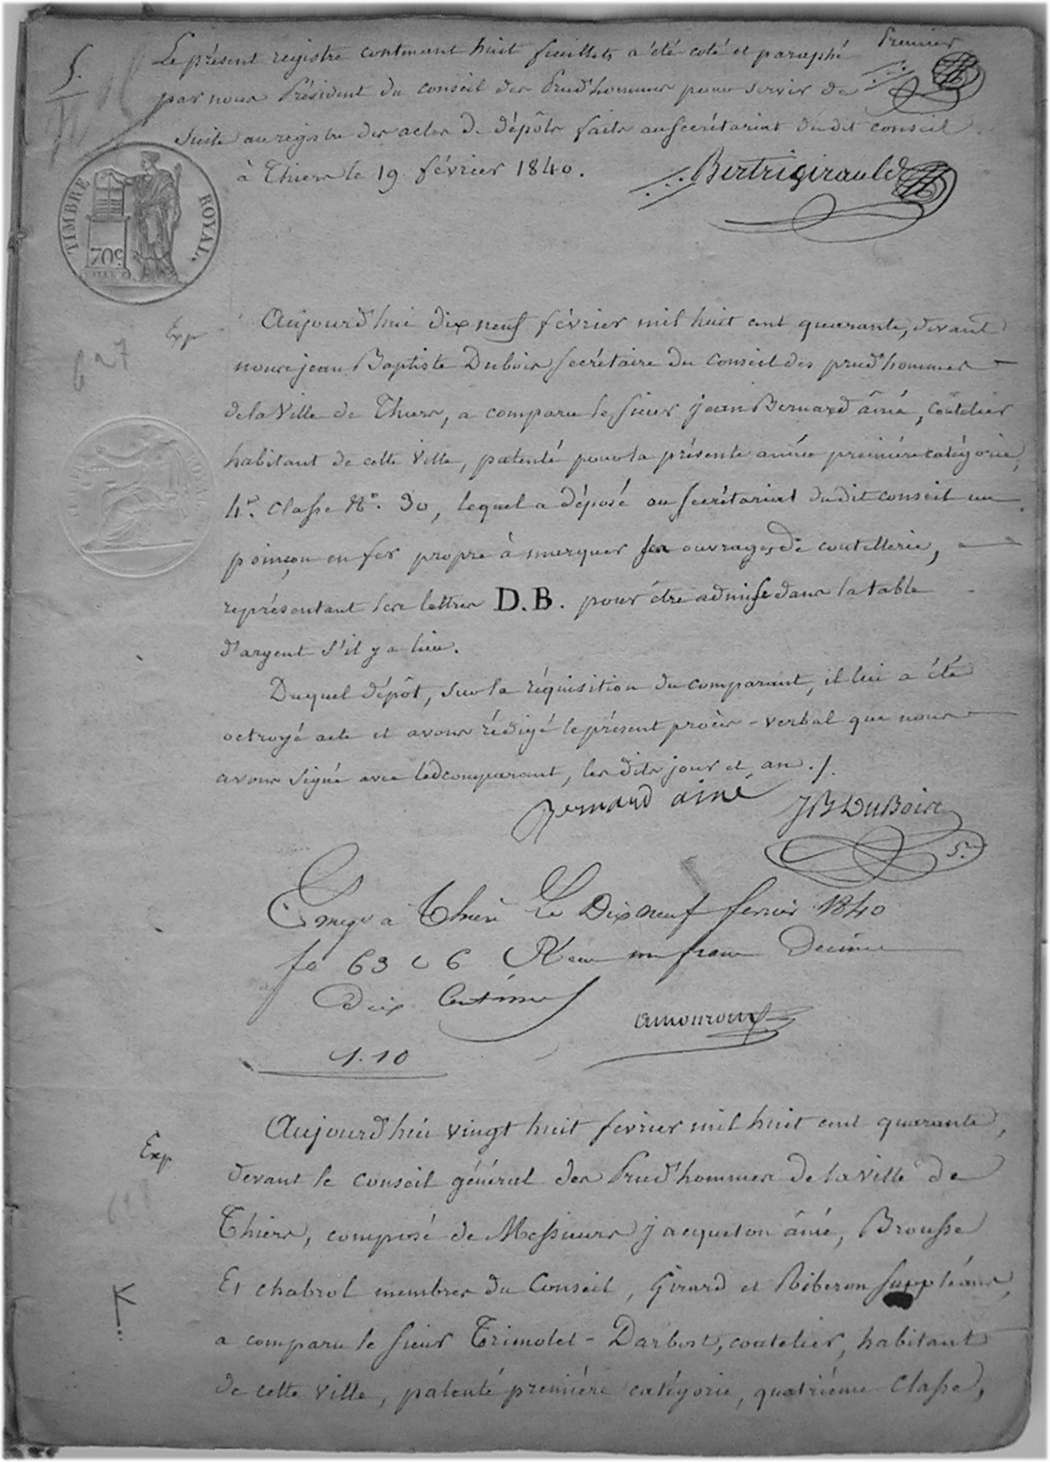 5.
Premier
Le présent registre contenant huit feuillets a été coté et paraphé
par nous Président du conseil des Prud'hommes pour servir de
suite au registre des actes de dépôts faits au secrétariat dudit conseil
à Thiers le 19 février 1840.
Bertrigirauld
TIMBRE ROYAL
70c
Exp
627
Aujourd'hui dix neuf février mil huit cent quarante, devant
nous jean Baptiste Dubois secrétaire du conseil des prud'hommes
de la Ville de Thiers, a comparu le sieur jean Bernard âiné, coutelier
habitant de cette Ville, patenté pour la présente année première catégorie,
4e. classe No. 30, lequel a déposé au secrétariat dudit conseil un
poinçon en fer propre à marquer ses ouvrages de coutellerie,
représentant les lettres D.B. pour être admise dans la table
d'argent s'il y a lieu.
Duquel dépôt, sur la réquisition du comparant, il lui a été
octroyé acte et avons rédigé le présent procès-verbal que nous
avons signé avec led comparant, les dits jour et an ./.
Bernard ainé JB DuBois
Sre.
Enregé a Thiers Le Dix neuf fevrier 1840
fo 63 c 6 Reçu un franc Decime
dix Centimes
amouroux
1.10
Exp
Aujourd'hui vingt huit fevrier mil huit cent quarante,
devant le conseil général des Prud'hommes de la ville de
Thiers, composé de Messieurs jacqueton âiné, Brousse
Et chabrol membres du Conseil, Girard et Riberon suppléans,
a comparu le sieur Trimolet-Darbost, coutelier, habitant
de cette ville, patenté première catégorie, quatrième classe,